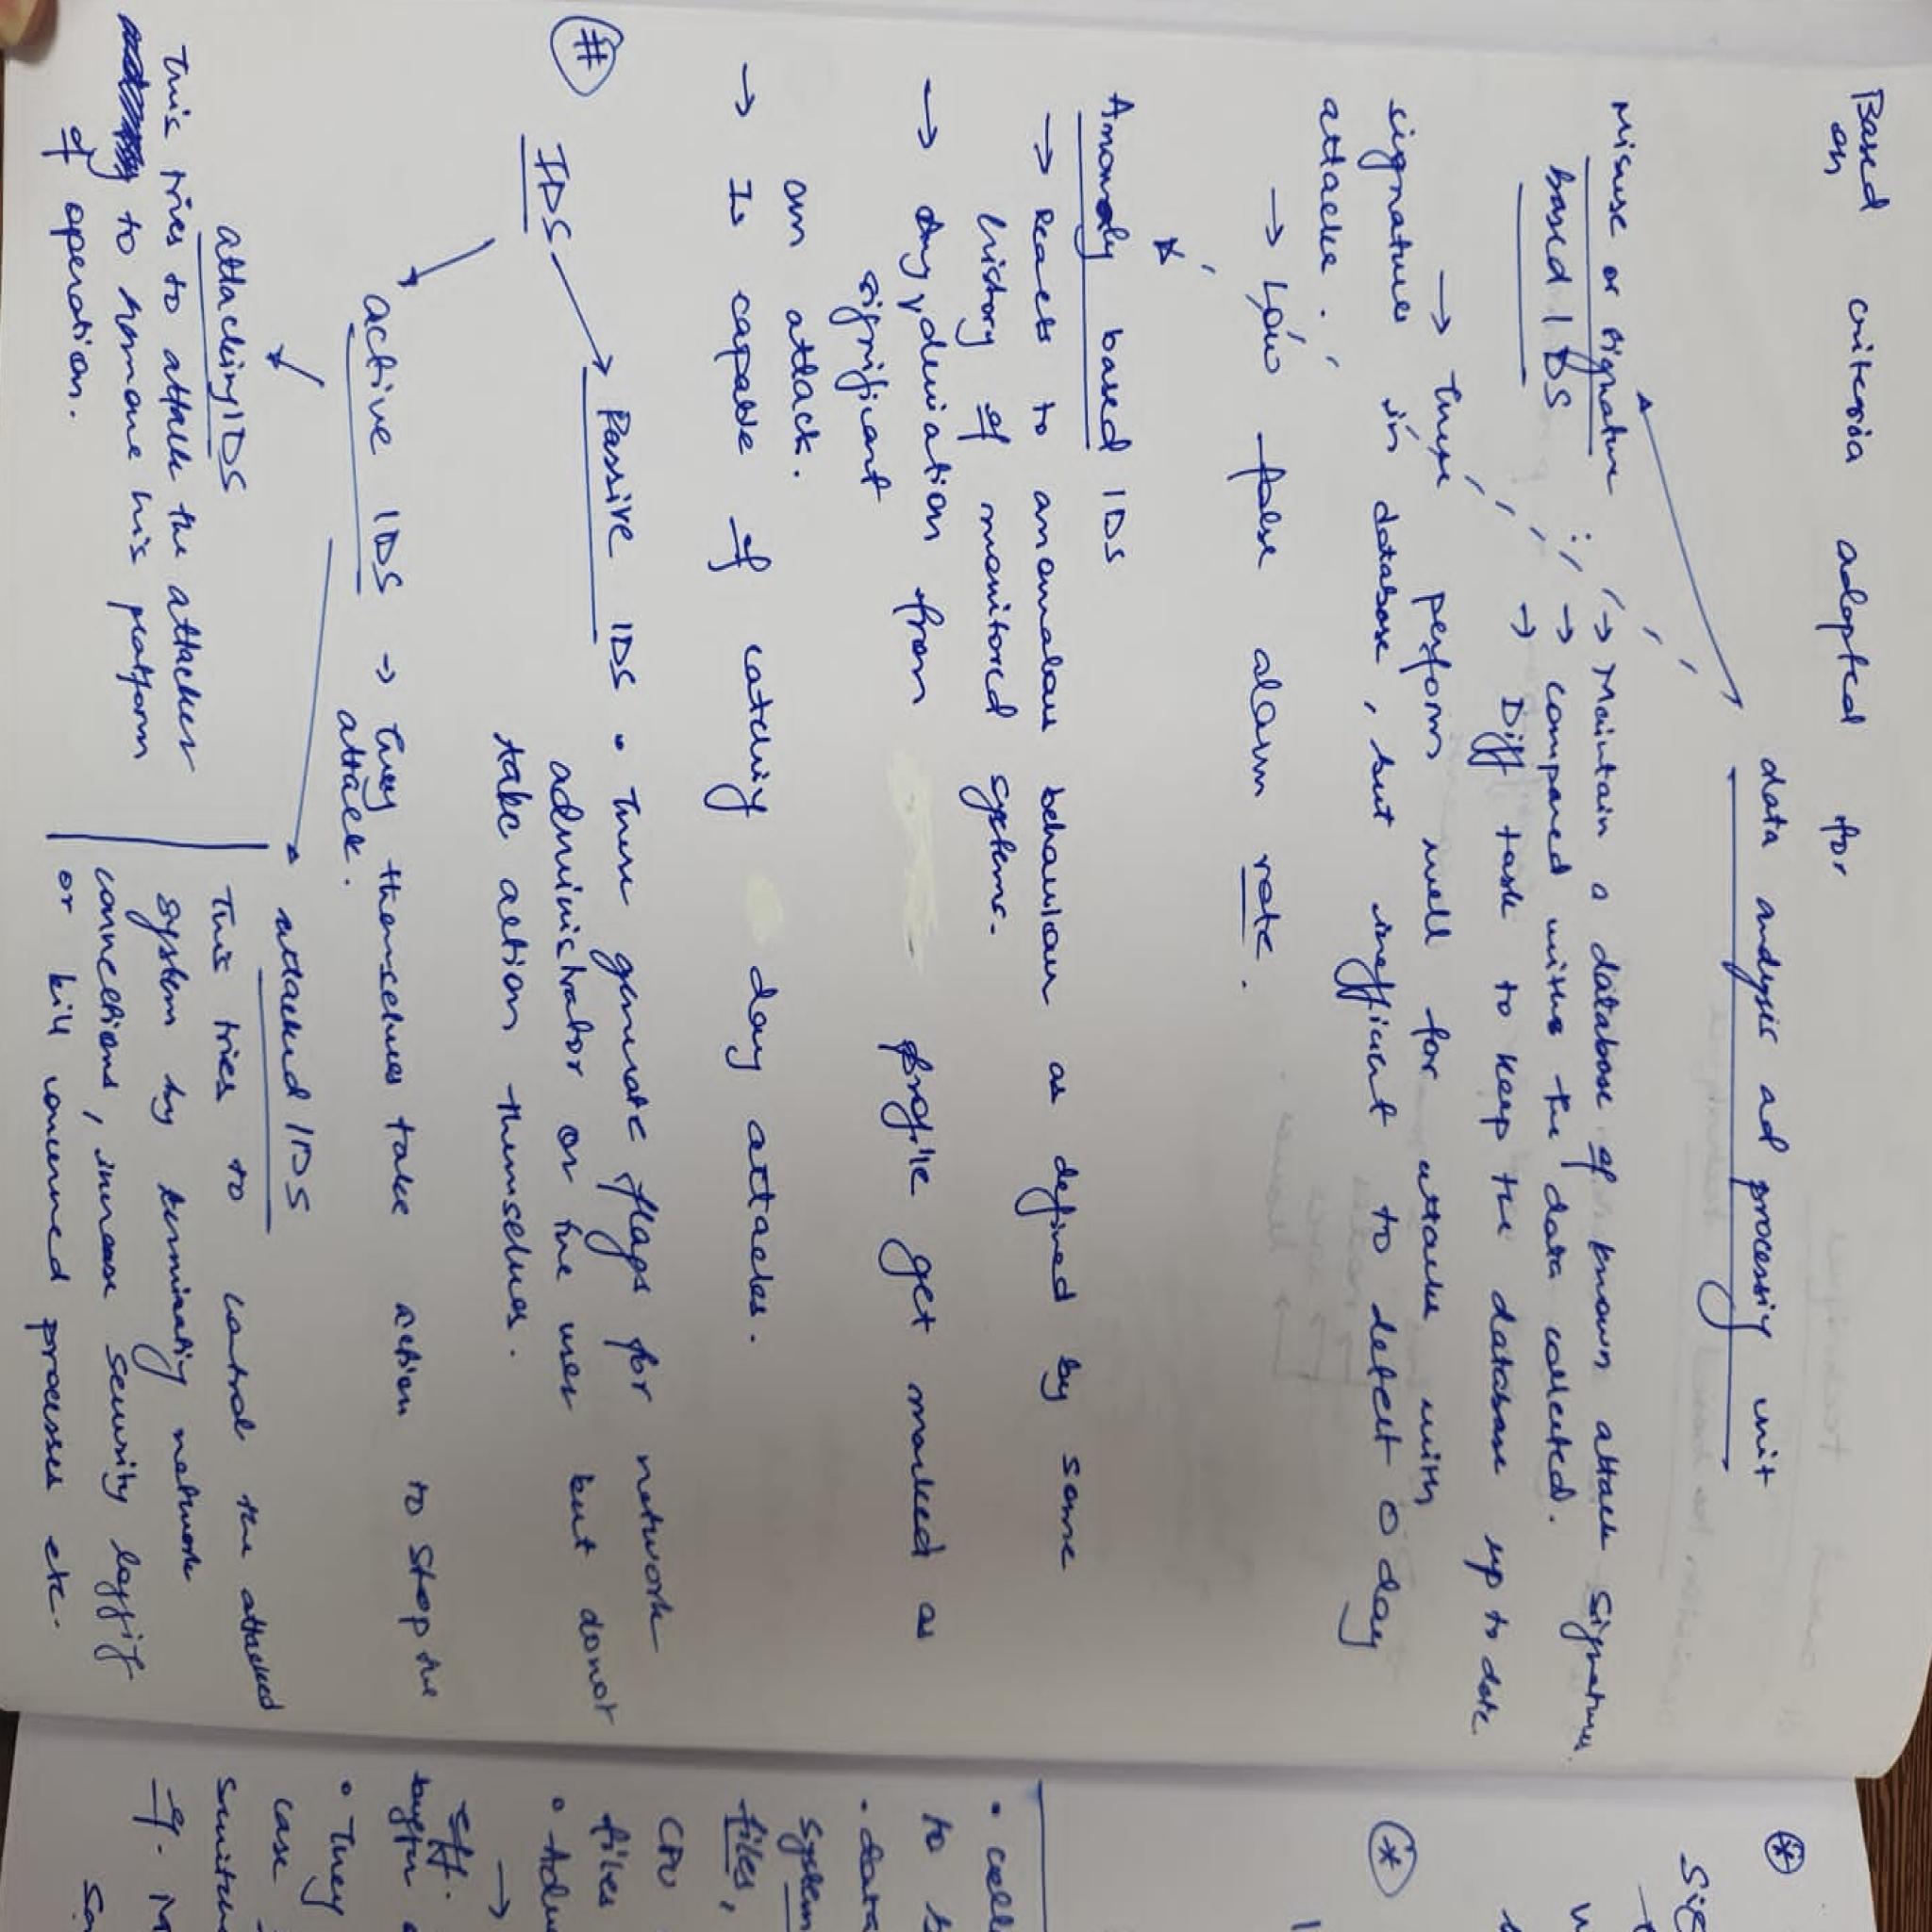 Based criteria adopted for
on
data analysis ad processing unit
Misuse or signature : → Maintain a database of known attack signatures.
based IDS → compared withe the data collected.
→ Diff task to keep the database up to date
→ These perform well for attacks with
signatures in database, but inefficient to detect 0 day
attacks.
→ Low false alarm rate.
Anomaly based IDS
→ Reacts to anomalous behaviour as defined by some
history of monitored systems.
→ Any deviation from profile get marked as
significant
an attack.
→ Is capable of catching 0 day attacks.
#
IDS → Passive IDS • These generate flags for network
administrator or the user but donot
take action themselves.
active IDS → They themselves take action to stop the
attack.
attacking IDS
This tries to attack the attacker
to remove his platform
of operation.
attacked IDS
This tries to control the attacked
system by terminating network
connections, increase security logging
or kill concerned processes etc.
*
Sig
*
• coll
to
• data
system
files,
CPU
files
→
eff.
• They
case